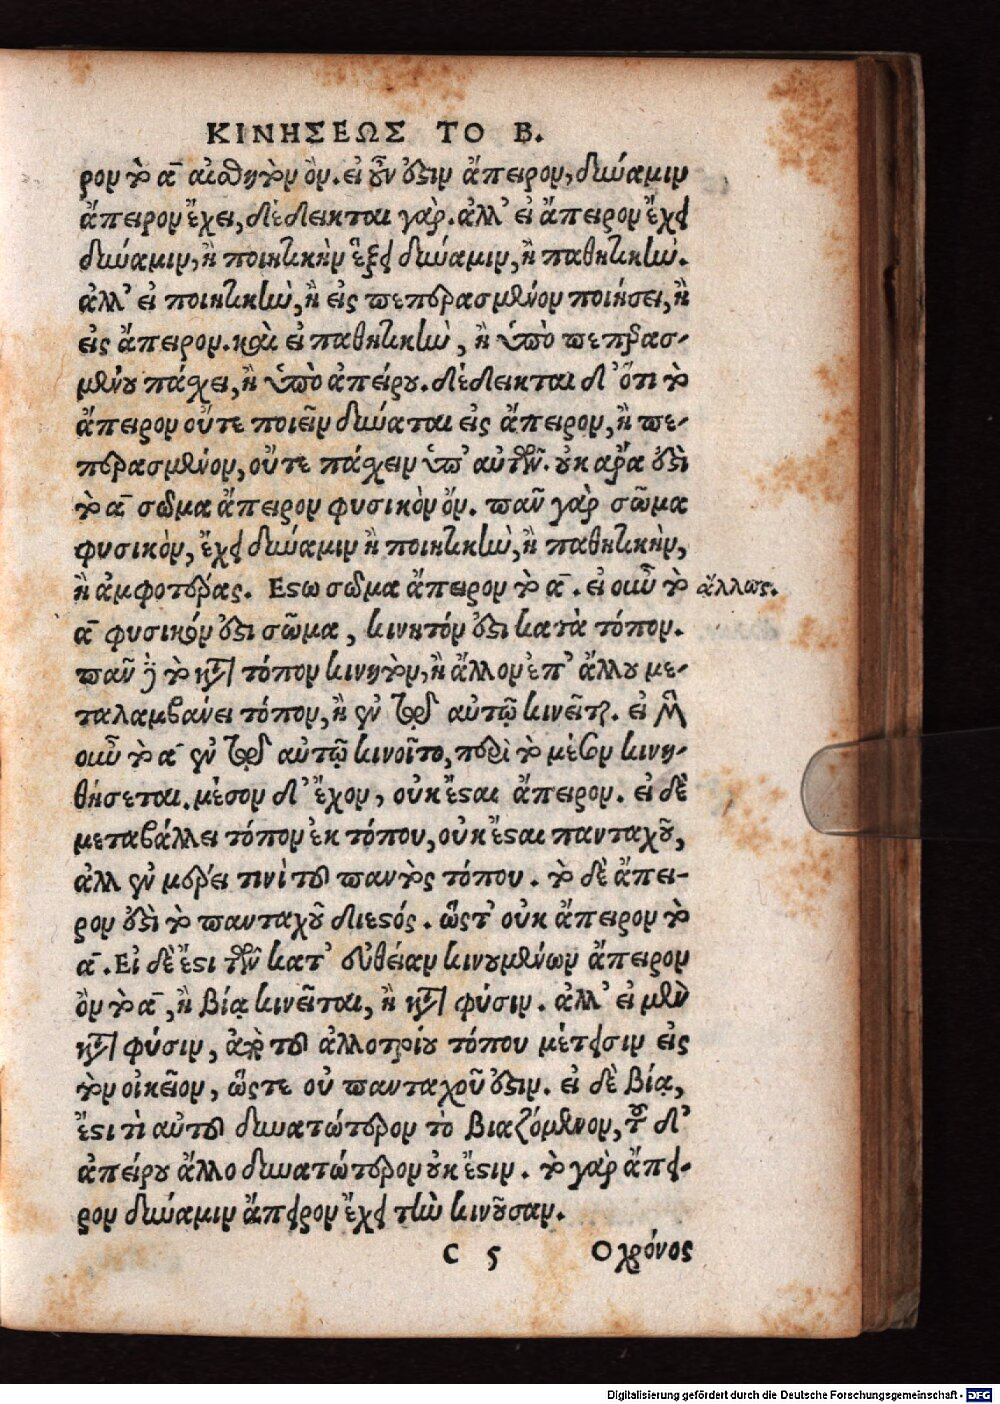 ΚΙΝΗΣΕΩΣ ΤΟ Β.
ρον τὸ α̅ αἰσθητὸν ὄν. εἰ οὖν ἐστιν ἄπειρον, δύναμιν
ἄπειρον ἔχει, δέδεικται γάρ. ἀλλ’ εἰ ἄπειρον ἔχει
δύναμιν, ἢ ποιητικὴν ἕξει δύναμιν, ἢ παθητικήν.
ἀλλ’ εἰ ποιητικὴν, ἢ εἰς πεπερασμένον ποιήσει, ἢ
εἰς ἄπειρον. καὶ εἰ παθητικὴν, ἢ ὑπὸ πεπερασ-
μένου πάσχει, ἢ ὑπὸ ἀπείρου. δέδεικται δ’ ὅτι τὸ
ἄπειρον οὔτε ποιεῖν δύναται εἰς ἄπειρον, ἢ πε-
περασμένον, οὔτε πάσχειν ὑπ’ αὐτῶν. οὐκ ἄρα ἐστὶ
τὸ α̅ σῶμα ἄπειρον φυσικὸν ὄν. πᾶν γὰρ σῶμα
φυσικὸν, ἔχει δύναμιν ἢ ποιητικὴν, ἢ παθητικὴν,
ἢ ἀμφοτέρας. Εστω σῶμα ἄπειρον τὸ α̅. εἰ οὖν τὸ
ἄλλως.
α̅ φυσικόν ἐστι σῶμα, κινητόν ἐστι κατὰ τόπον.
πᾶν δὲ τὸ κατὰ τόπον κινητὸν, ἢ ἄλλον ἐπ’ ἄλλου με-
ταλαμβάνει τόπον, ἢ ἐν αὐτῷ κινεῖται. εἰ μὲν
οὖν τὸ α̅ ἐν αὐτῷ κινοῖτο, περὶ τὸ μέσον κινη-
θήσεται. μέσον δ’ ἔχον, οὐκ ἔσται ἄπειρον. εἰ δὲ
μεταβάλλει τόπον ἐκ τόπου, οὐκ ἔσται πανταχοῦ,
ἀλλ ἐν μέρει τινὶ τοῦ παντὸς τόπου. τὸ δὲ ἄπει-
ρον ἐστὶ τὸ πανταχοῦ διεστός. ὥστ’ οὐκ ἄπειρον τὸ
α̅. Εἰ δὲ ἔστι τῶν κατ’ εὐθείαν κινουμένων ἄπειρον
ὂν τὸ α̅, ἢ βίᾳ κινεῖται, ἢ κατὰ φύσιν. ἀλλ’ εἰ μὲν
κατὰ φύσιν, ἀπὸ τοῦ ἀλλοτρίου τόπου μέτεισιν εἰς
τὸν οἰκεῖον, ὥστε οὐ πανταχοῦ ἐστιν. εἰ δὲ βίᾳ,
ἔστι τὶ αὐτοῦ δυνατώτερον τὸ βιαζόμενον, τοῦ δ’
ἀπείρου ἄλλο δυνατώτερον οὐκ ἔστιν. τὸ γὰρ ἄπει-
ρον δύναμιν ἄπειρον ἔχει τὴν κινοῦσαν.
C 5 Ο χρόνος
Digitalisierung gefördert durch die Deutsche Forschungsgemeinschaft - DFG